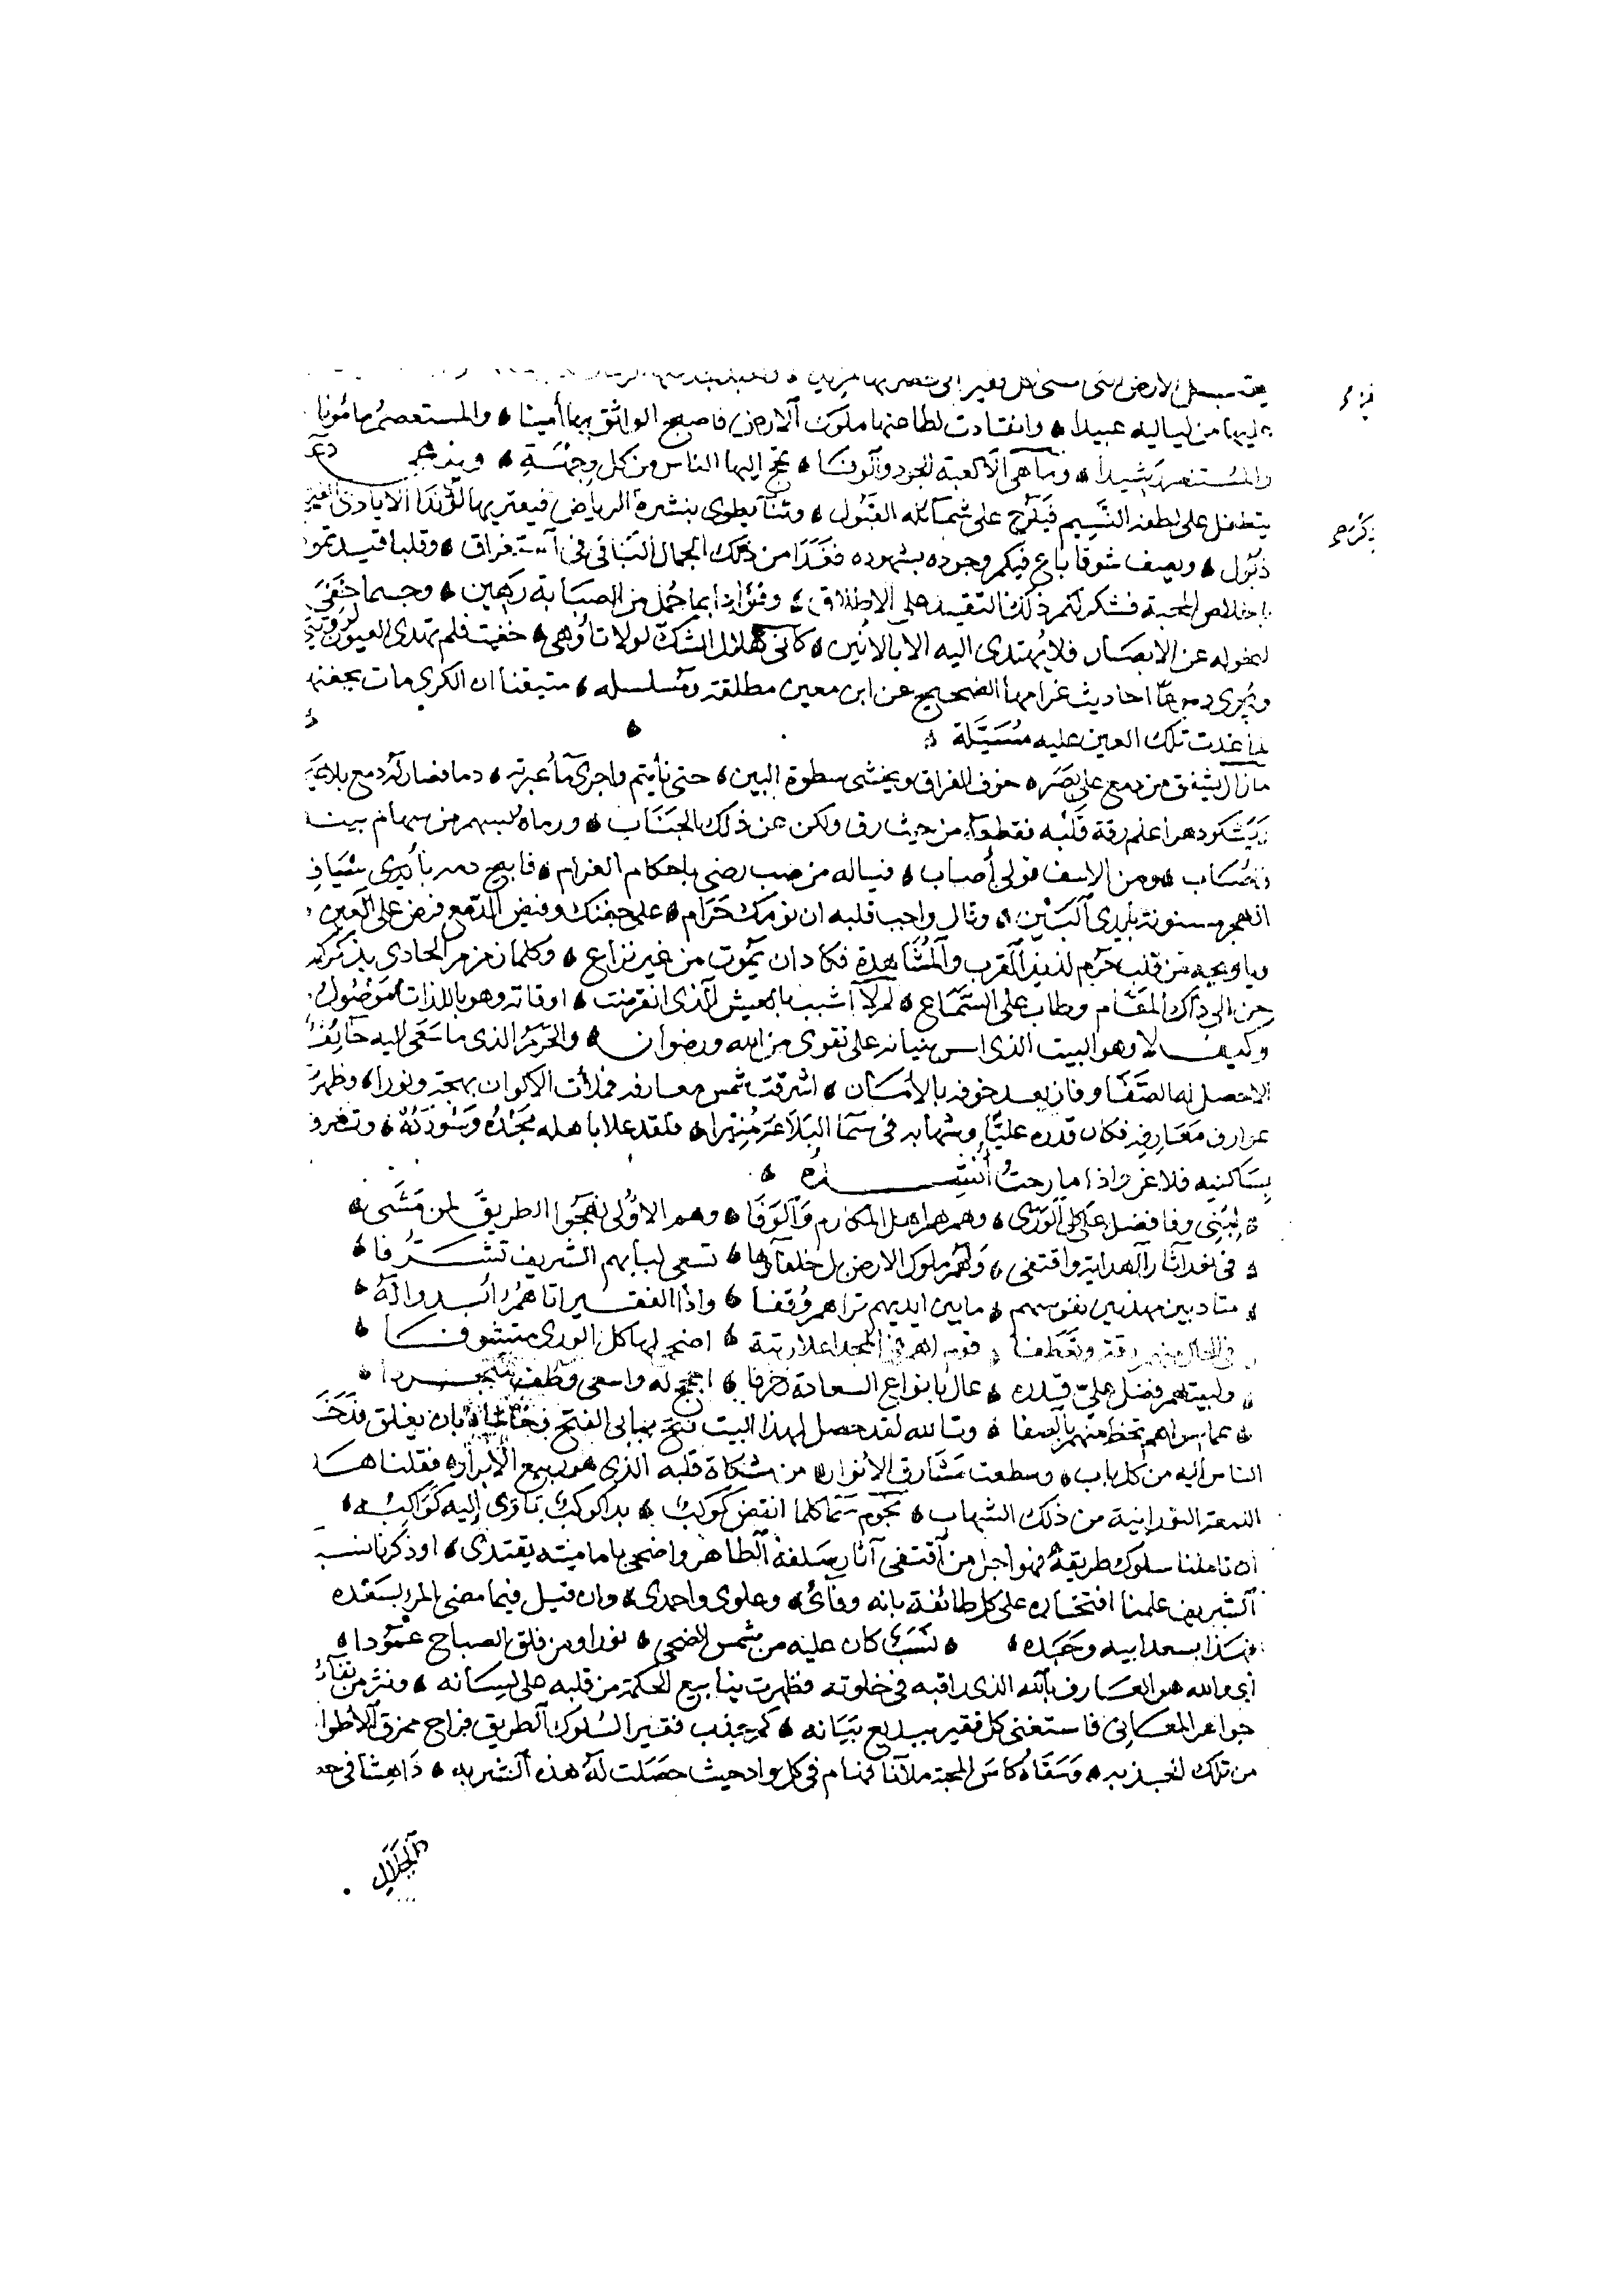 يقبل الارض التي
عليها من لياليه عبيدا ۞ وانقادت لطاعتها ملوك الارض فاصبح الواثق بها أمينا ۞ والمستعصم بها مأمونا
والمستنصر رشيدا ۞ وما هي الا كعبة الجود والوفا ۞ تحج اليها الناس من كل وجهة ۞
يتطفل على لطفه النسيم فيلوح على شمائله القبول ۞ وثنا يطوى بنشره الرياض فيعتريها الايادي
ذبول ۞ ويصف شوقا باع فيكم وجوده بشهوده فغدا من ذلك الجمال الباقي في استغراق ۞ وقلبا قيد
باخلاص المحبة فشكر لكم ذلك التقييد على الاطلاق ۞ وفؤادا بما حمل من الصبابة رهين ۞ وجسما خفي
لنحوله عن الابصار فلا يهتدى اليه الا بالانين ۞ كأني هلال الشك لولا تأوهي ۞ خفيت فلم تهتدى العيون لرؤيتي
ويروى دموعا احاديث غرامها الصحيح عن ابن معين مطلقة ومسلسله ۞ متيقنا ان الكرى مات بجفنه
لما غدت تلك العين عليه مسبلة ۞
ما زال يشفق من دمع على بصره خوف الفراق ويخشى سطوة البين ۞ حتى نأيتم واجرى ماء عبرته ۞ دما فصار له دمع بلا عين
ويشكو دهرا علم رقة قلبه فقطعه من حيث رق ولكن عن ذلك الجناب ۞ ورماه بسهم من سهام بينه
فصاب ۞ ومن الاسف قولي أصاب ۞ فياله من صب رضى باحكام الغرام ۞ فابيح دمه بأيدى
الهجر مسنونة بايدى البين ۞ وقال واجب قلبه ان نومك حرام ۞ على جفنك وفيض الدمع فرض على العين ۞
وياويحه من قلب حرم لذيذ القرب والمشاهدة فكاد ان يموت من غير نزاع ۞ وكلما زمزم الحادى بذكركم
حن الى ذاك المقام وطاب على السماع ۞ لم لا أشبب بالعيش الذى انقرضت ۞ اوقاته وهو باللذات موصول
وكيف لا وهو البيت الذى اسس بنيانه على تقوى من الله ورضوان ۞ والحرم الذى ما سعى اليه خائف
الا حصل له الصفا وفاز بعد خوفه بالأمان ۞ اشرقت شمس معارفه فملأت الاكوان بهجة ونورا ۞ وظهرت
عوارف معارفه فكان قدره عليا وشهابه في سما البلاغة منيرا ۞ فلقد علا باهله مجده وسؤدده ۞
بساكنيه فلا غرو اذا ما رحت أنشده ۞
۞ لبني وفا فضل على كل الورى ۞ وهم هم اهل المكارم والوفا ۞ وهم الاولى نهجوا الطريق لمن مشى ۞
۞ في نهد آثار الهداية واقتفى ۞ ولهم ملوك الارض بل خلفاؤها ۞ تسعى لبابهم الشريف تشرفا ۞
۞ متأدبين مهذبين نفوسهم ۞ ما بين ايديهم تراهم وقفا ۞ واذا الفقير اتاهم أبدوا له ۞
۞ في الحال رقة وتعطفا ۞ قوم لهم في المجد اعلا رتبة ۞ اضحى لها كل الورى متشوفا ۞
۞ ولبيتهم فضل علي قدره ۞ عال بانواع السعادة زخرفا ۞ احجج له واسعى وطف متجردا ۞
۞ عما سواهم تحظ منهم بالصفا ۞ وتالله لقد حصل لهذا البيت فتح بباب الفتح بان يغلق فدخل
الناس اليه من كل باب ۞ وسطعت مشارق الانوار من مشكاة قلبه الذى هو ربيع الابرار فقلنا هذه
اللمعة النورانية من ذلك الشهاب ۞ نجوم سما كلما انقض كوكب ۞ بدا كوكب تأوى اليه كواكبه ۞
ان تأملنا سلوك طريقه فهو اجل من اقتفى آثار سلفه الطاهر واضحى بامامته يقتدى ۞ او ذكرنا نسبه
الشريف علمنا افتخاره على كل طائفة بانه وفائى ۞ وعلوى واحمدى ۞ وان قيل فيما مضى المرء بسعده
فهذا بسعد ابيه وجده ۞ ۞ نسب كان عليه من شمس الضحى ۞ نورا ومن فلق الصباح عمودا ۞
اي والله هو العارف بالله الذى راقبه في خلوته فظهرت ينابيع الحكمة من قلبه على لسانه ۞ ونثر من
جواهر المعانى فاستغنى كل فقير ببديع بيانه ۞ كم جذب فقير السلوك الطريق فراح ممزق الاطواق
من تلك الجذبه ۞ وسقاه كاس المحبة ملآنا فهام في كل واد حيث حصلت له هذه الشربه ۞ داهشا في
الجلال